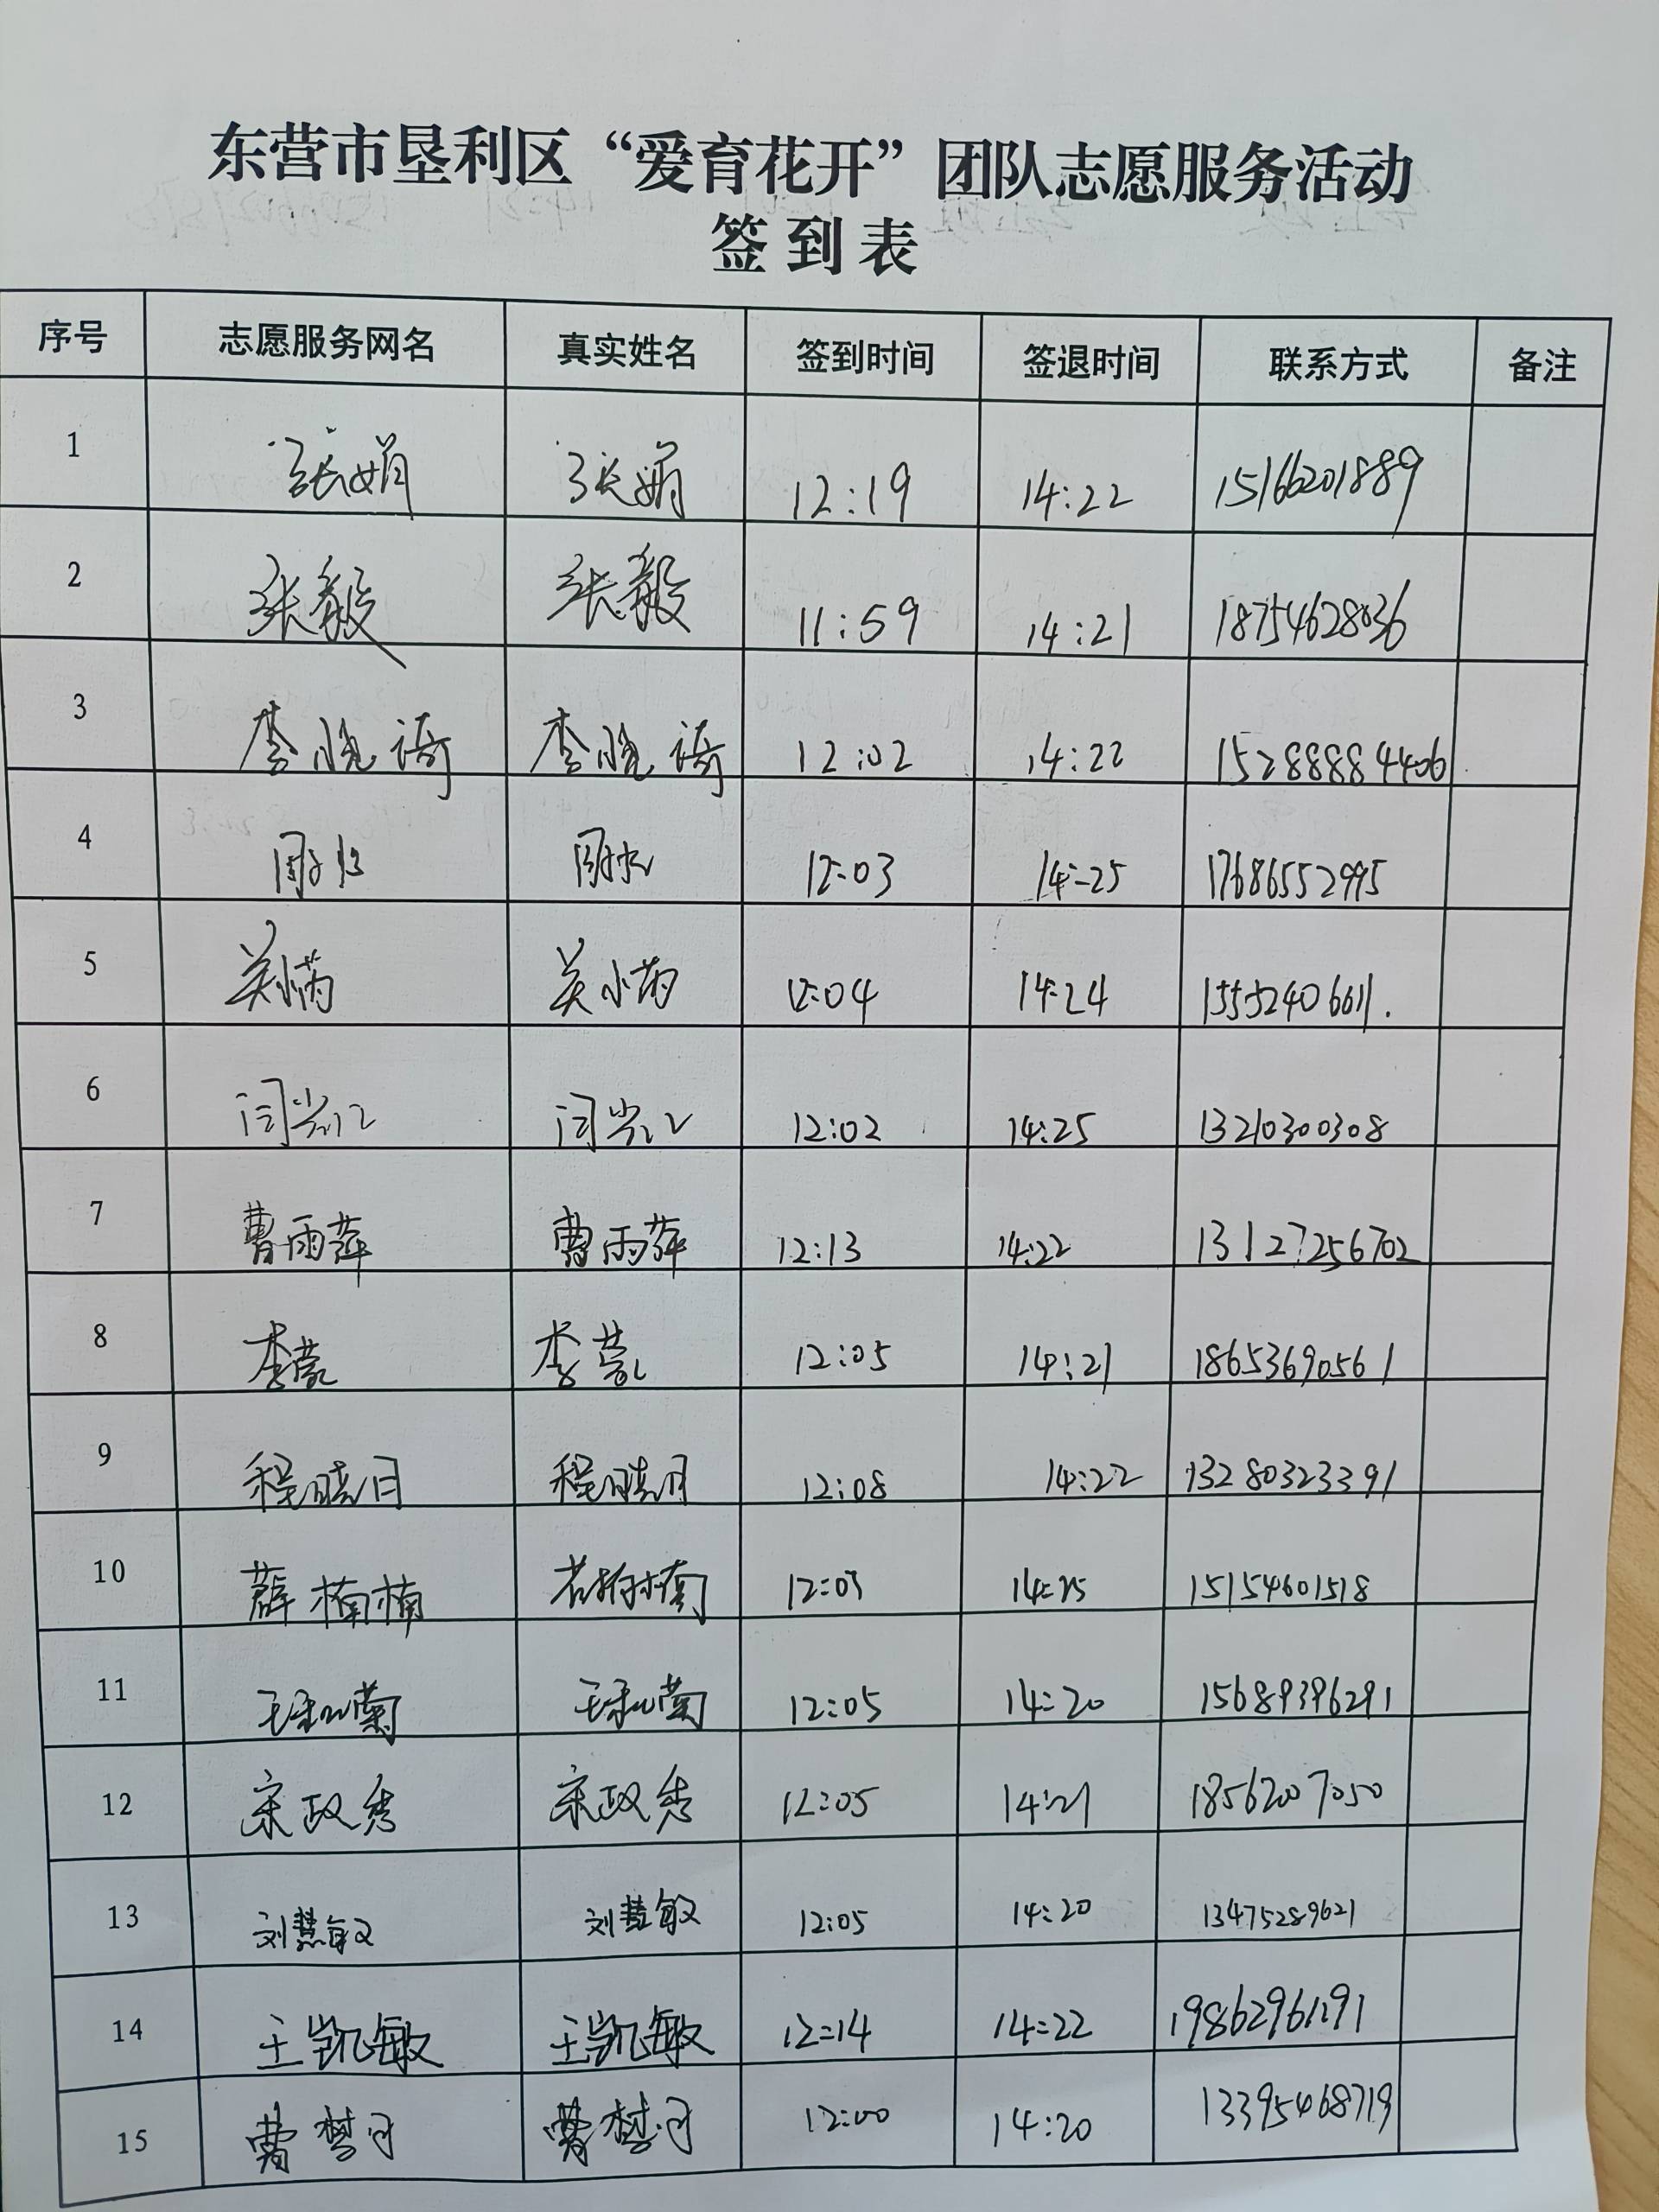 东营市垦利区“爱育花开”团队志愿服务活动
签到表
序号 志愿服务网名 真实姓名 签到时间 签退时间 联系方式 备注
1 张娟 张娟 12:19 14:22 15166201889
2 张毅 张毅 11:59 14:21 18754628036
3 李晓语 李晓语 12:02 14:22 15288884406
4 12:03 14:25 17686552995
5 12:04 14:24 15552406611.
6 12:02 14:25 13210300308
7 曹雨萍 曹雨萍 12:13 14:22 13127256702
8 李 李 12:05 14:21 18653690561
9 程晓 程晓 12:08 14:22 13280323391
10 薛楠楠 薛楠楠 14:25 15154601518
11 12:05 14:20 15689396291
12 宋政秀 宋政秀 12:05 14:21 18562007050
13 刘慧敏 刘慧敏 12:05 14:20 13475289621
14 王凯敏 王凯敏 12:14 14:22 19862961191
15 曹梦 曹梦 12:00 14:20 13395468719